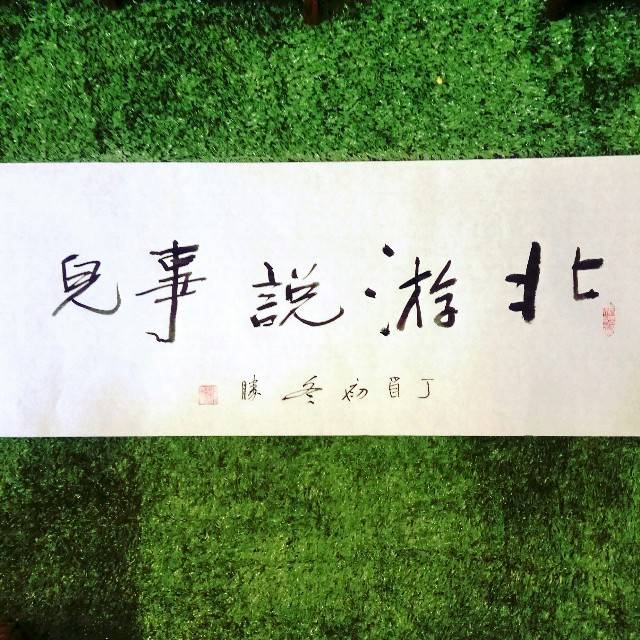 北游說事兒
丁酉初冬 勝